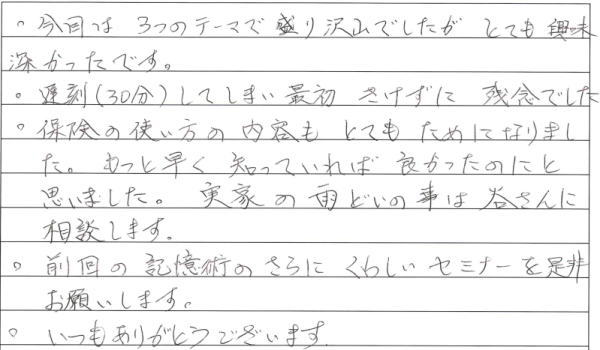 。今回は 3つのテーマで盛り沢山でしたが とても 興味
深かったです。
。遅刻(30分)してしまい最初 きけずに 残念でした
。保険の使い方の内容も とても ためになりまし
た。もっと早く 知っていれば 良かったのにと
思いました。 実家の雨どいの事は 谷さんに
相談します。
。前回の記憶術のさらに くわしい セミナーを是非
お願いします。
。いつもありがとうございます.